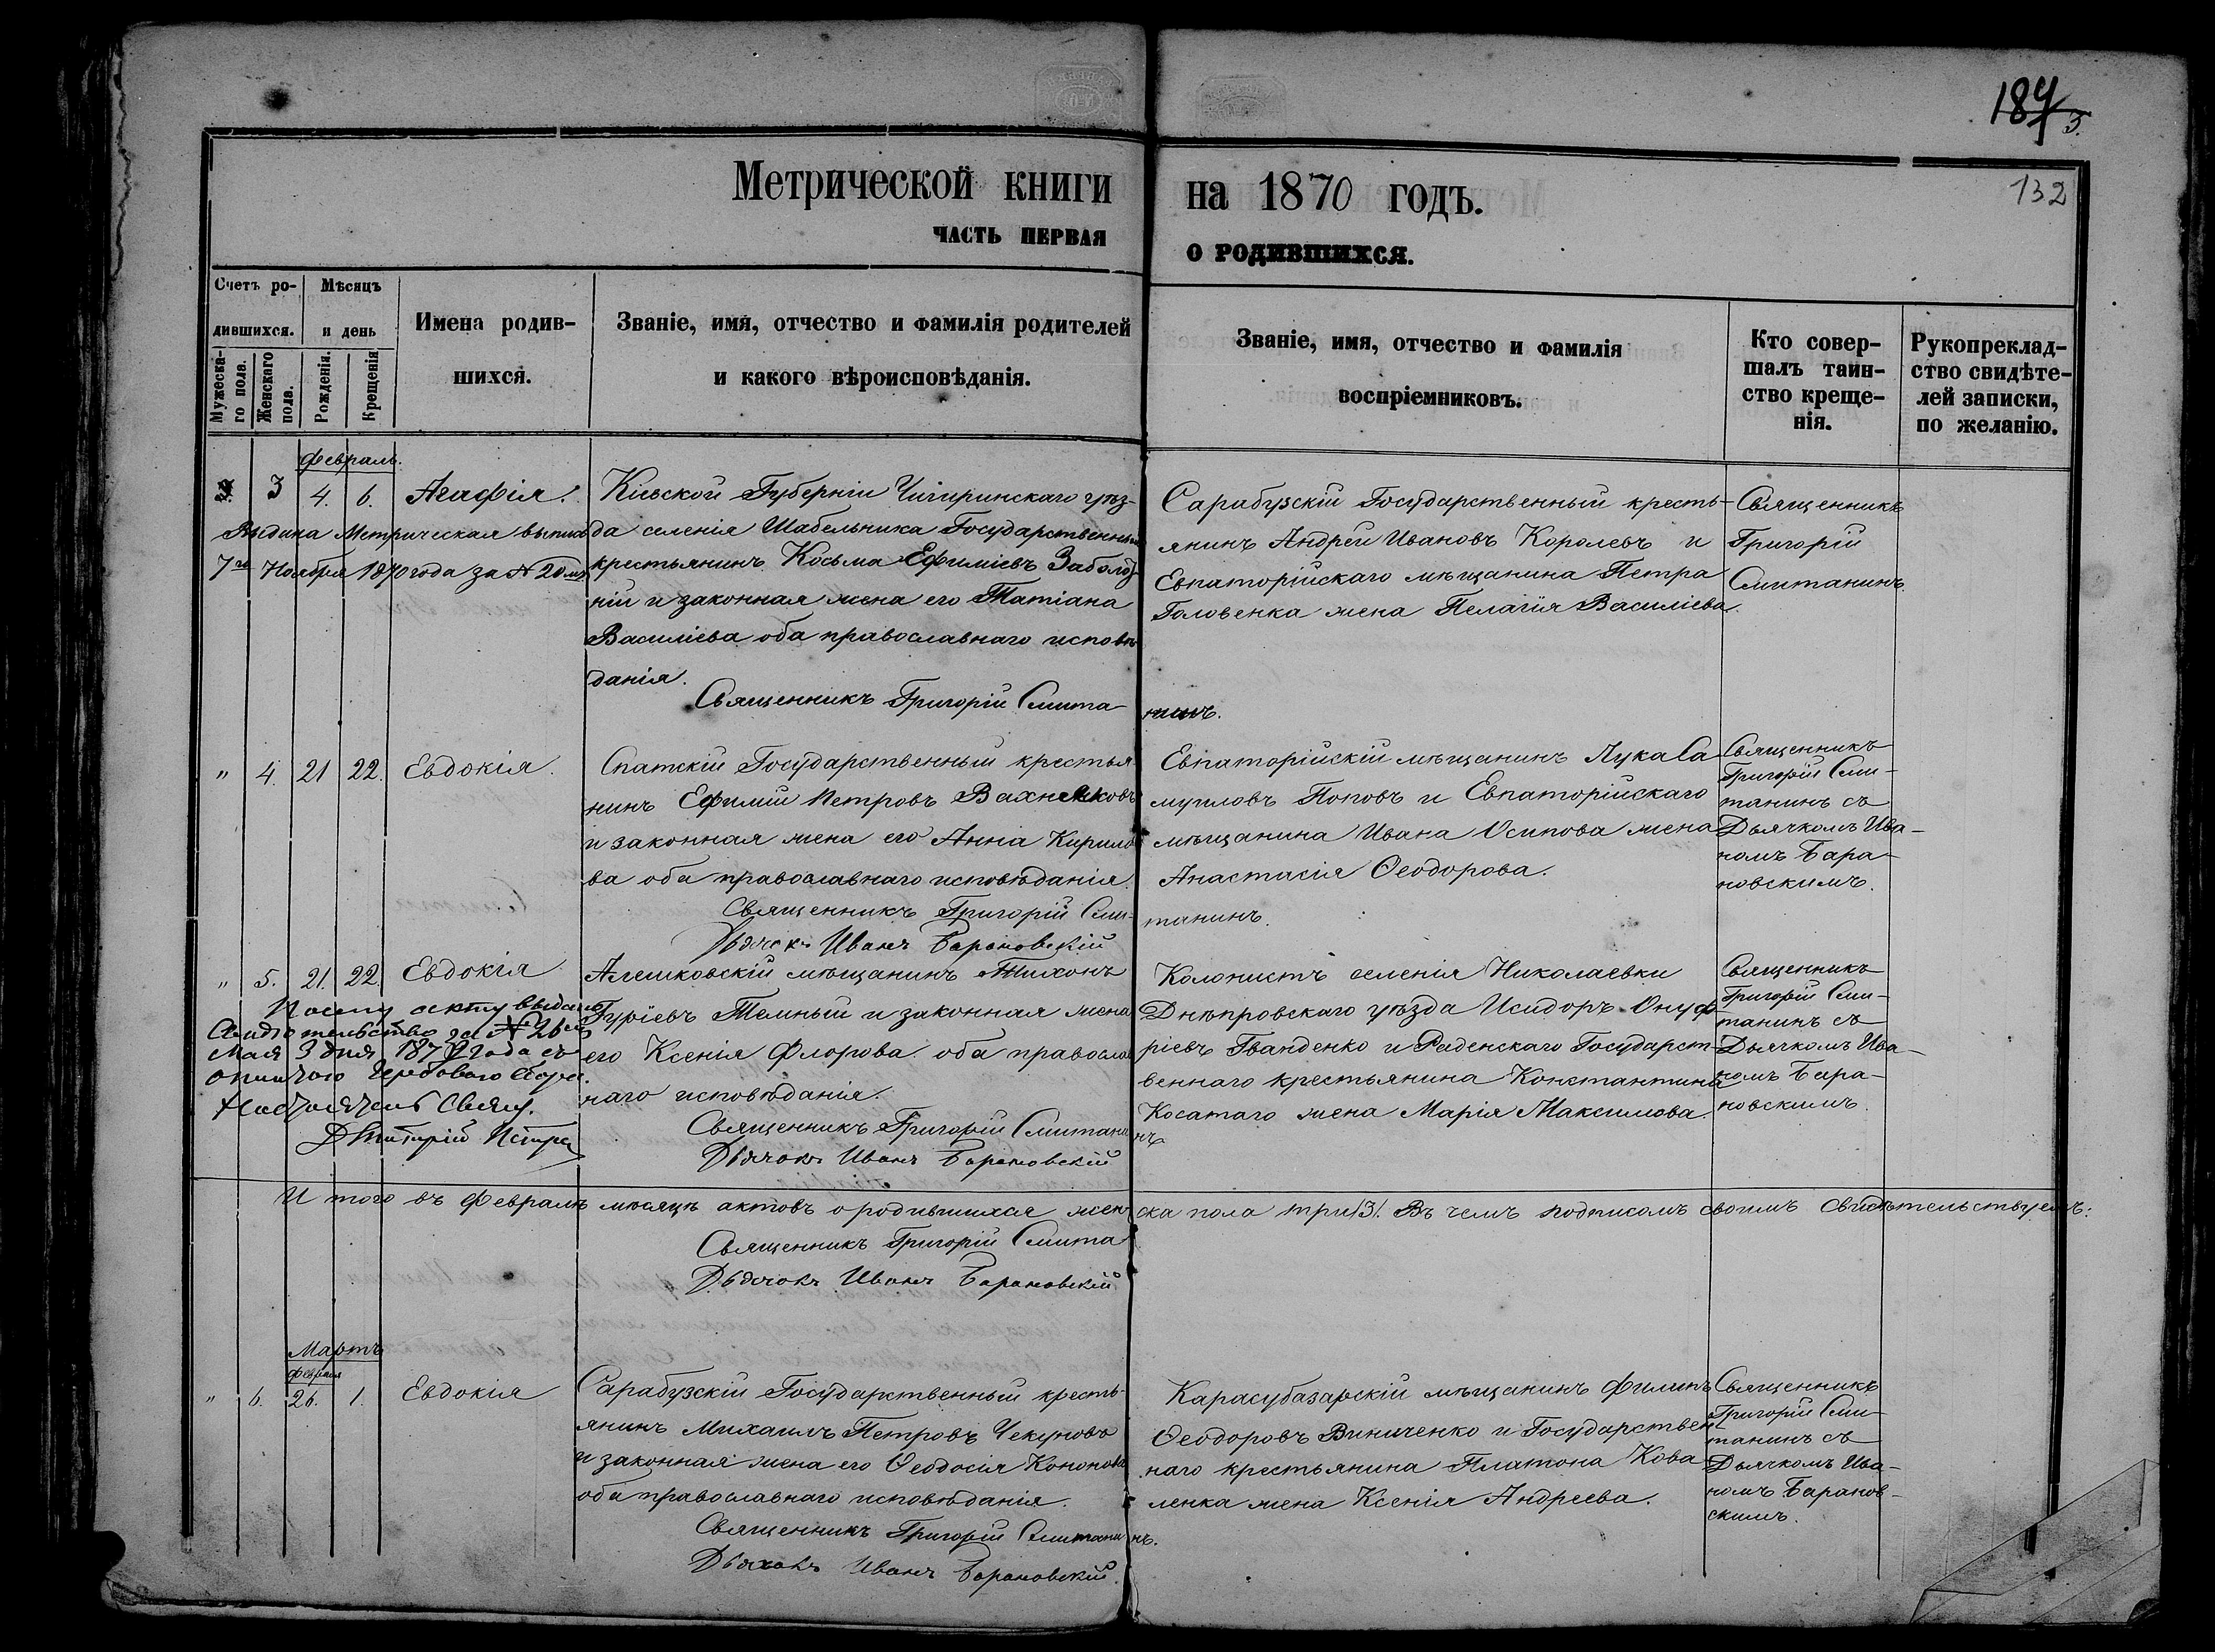 187/3.
132
Метрической книги на 1870 годъ.
часть первая о родившихся.
Счетъ ро-
дившихся.
Мужеска-
го пола.
Женскаго
пола.
Мѣсяцъ
и день
Рожденія.
Крещенія
Имена родив-
шихся.
Званіе, имя, отчество и фамилія родителей
и какого вѣроисповѣданія.
Званіе, имя, отчество и фамилія
воспріемниковъ.
Кто совер-
шалъ таин-
ство креще-
нія.
Рукопреклад-
ство свидѣте-
лей записки,
по желанію.
Февраль.
3 4. 6. Агафія.
Выдана Метрическая выпись
7го Ноября 1870 года за № 20мъ
Кіевской Губерніи Чигиринскаго уѣз-
да селенія Шабельника Государственный
крестьянинъ Косьма Ефиміевъ Заболо-
ній и законная жена его Татіана
Василіева оба православнаго исповѣ
данія.
Священникъ Григорій Смита-
нинъ.
Сарабузскій Государственный кресть-
янинъ Андрей Ивановъ Королевъ и
Евпаторійскаго мѣщанина Петра
Головенка жена Пелагія Василіева.
Священникъ
Григорій
Смитанинъ.
" 4. 21 22. Евдокія.
Спатскій Государственный крестья
нинъ Ефимій Петровъ Вахненковъ
и законная жена его Анна Кирило
ва оба православнаго исповѣданія.
Священникъ Григорій Сми-
танинъ.
Дьячокъ Иванъ Барановскій
Евпаторійскій мѣщанинъ Лука Са
муиловъ Поповъ и Евпаторійскаго
мѣщанина Ивана Осипова жена
Анастасія Ѳеодорова.
Священникъ
Григорій Сми-
танинъ съ
Дьячкомъ Ива-
номъ Бара-
новскимъ.
" 5. 21. 22. Евдокія
По сему акту выдано
Свидѣтельство за № 26мъ
Мая 3 дня года съ
Свящ.
Дмитрій
Алешковскій мѣщанинъ Тихонъ
Гуріевъ Темный и законная жена
его Ксенія Флорова оба православ
наго исповѣданія.
Священникъ Григорій Смитани
нъ
Дьячокъ Иванъ Барановскій
Колонистъ селенія Николаевки
Днѣпровскаго уѣзда Исидоръ Онуф
ріевъ Гванденко и Раденскаго Государст-
веннаго крестьянина Константина
Косатаго жена Марія Максимова.
Священникъ
Григорій Сми-
танинъ съ
Дьячкомъ Ива-
номъ Бара-
новскимъ.
И того въ Февралѣ мѣсяцѣ актовъ о родившихся жен ска пола три /3/. Въ чемъ подписомъ своимъ свидѣтельствуемъ:
Священникъ Григорій Смита
Дьячокъ Иванъ Барановскій
Мартъ
Февраля
" 6. 26. 1. Евдокія
Сарабузскій Государственный кресть-
янинъ Михаилъ Петровъ Чекуновъ
и законная жена его Ѳеодосія Кононова
оба православнаго исповѣданія.
Священникъ Григорій Смитани
нъ.
Дьячокъ Иванъ Барановскій.
Карасубазарскій мѣщанинъ Филипъ
Ѳеодоровъ Виниченко и Государствен
наго крестьянина Платона Кова
ленка жена Ксенія Андреева.
Священникъ
Григорій Сми-
танинъ съ
Дьячкомъ Ива-
номъ Баранов-
скимъ.